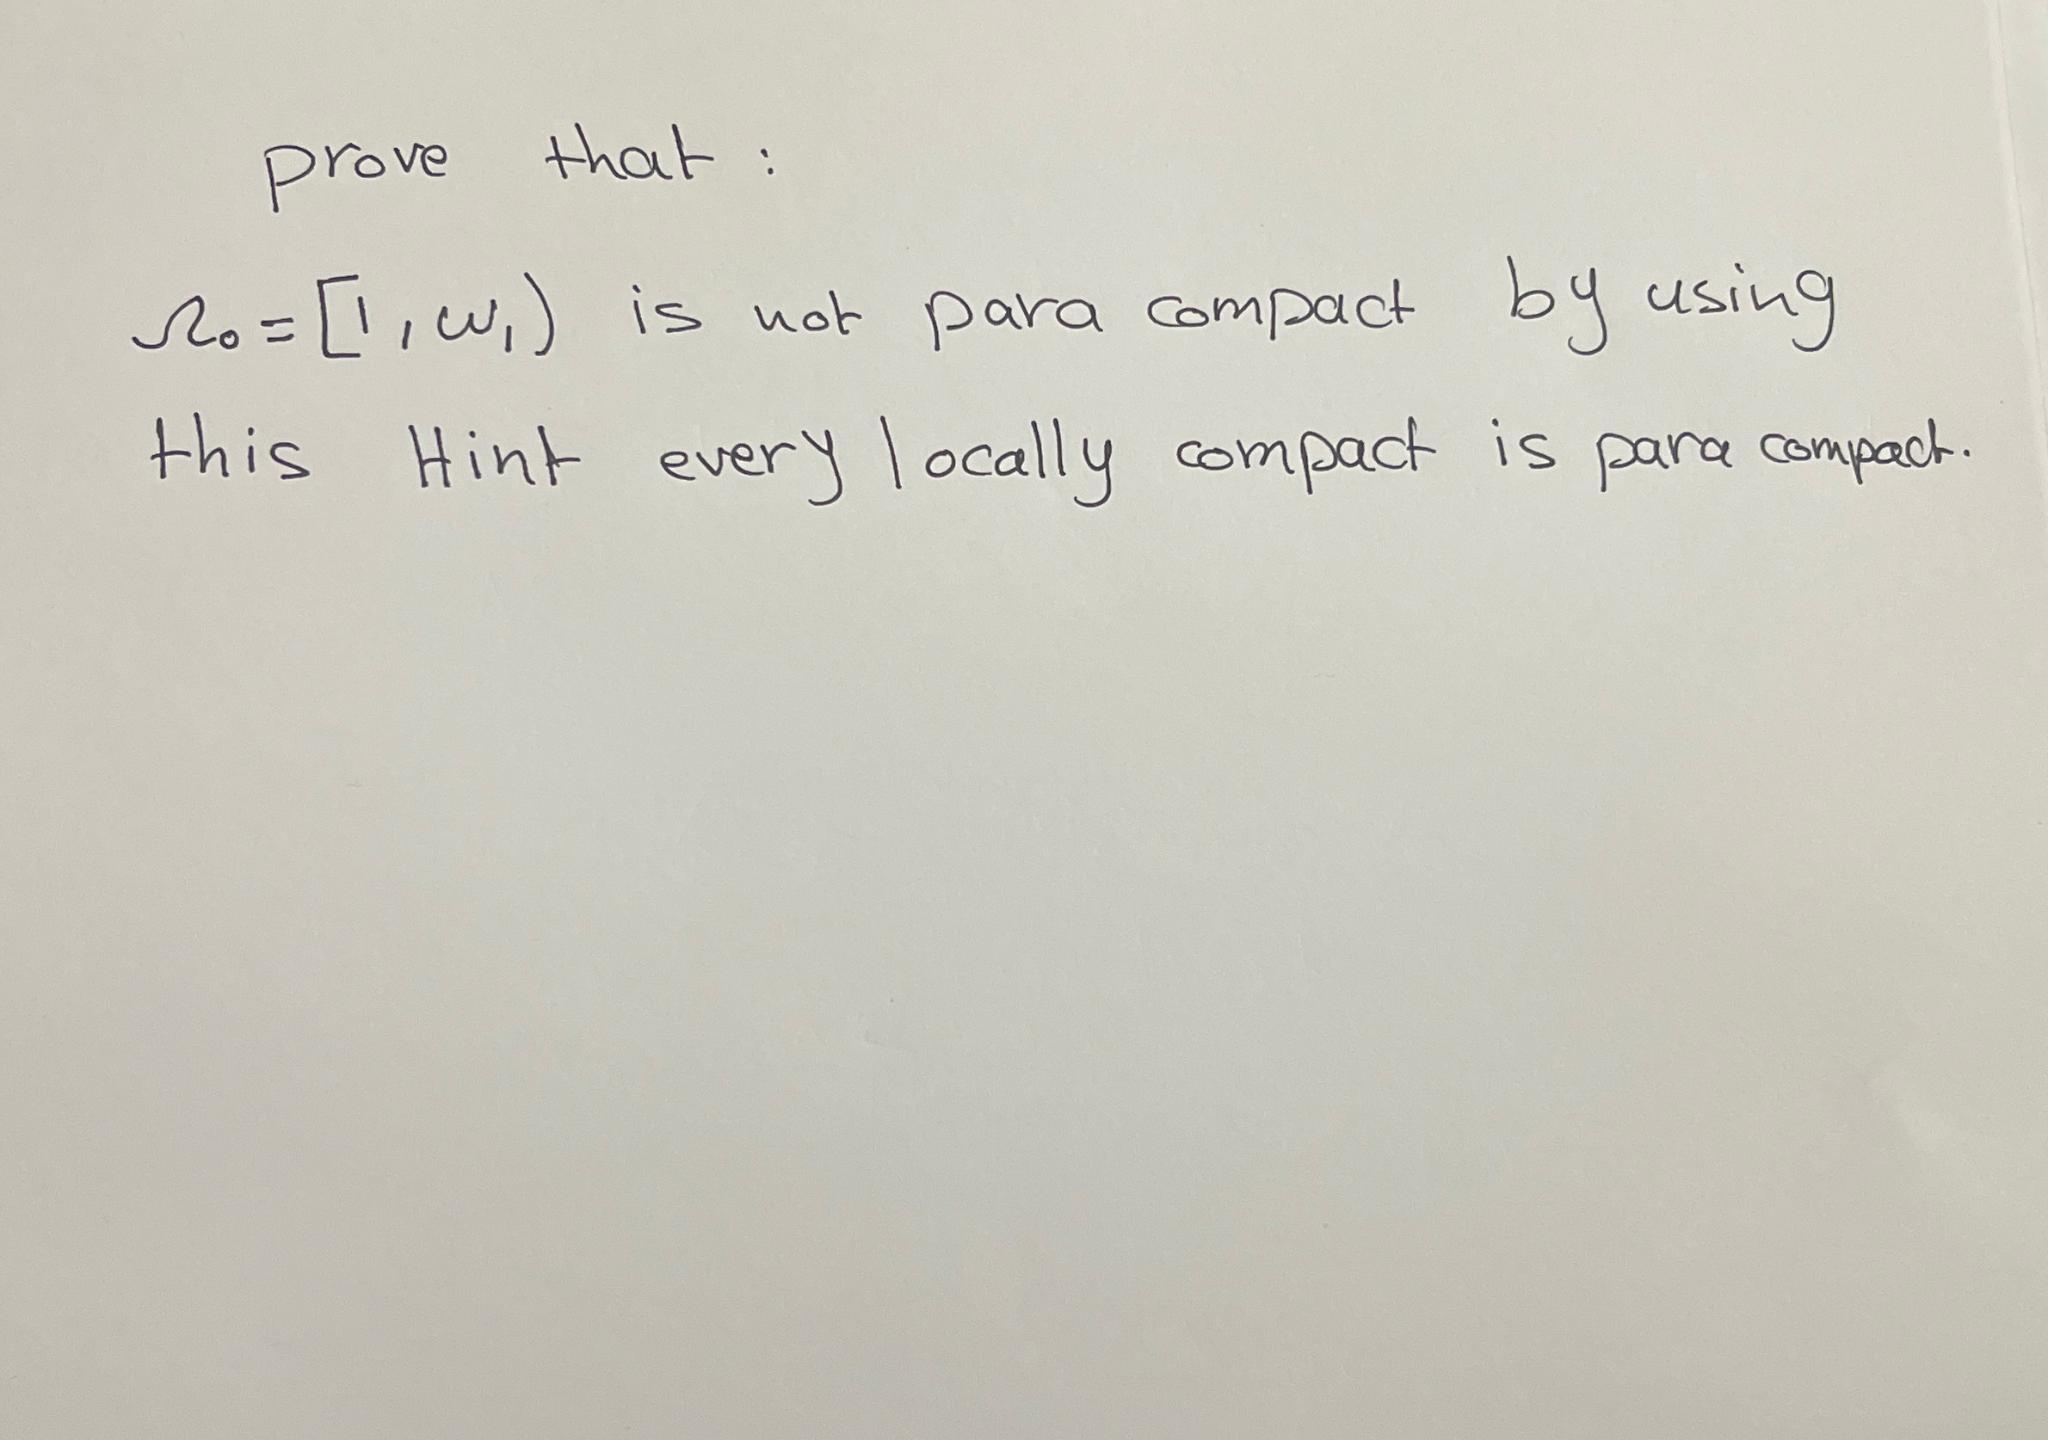 prove that :
Ω₀ = [1, ω₁) is not para compact by using
this Hint every locally compact is para compact.